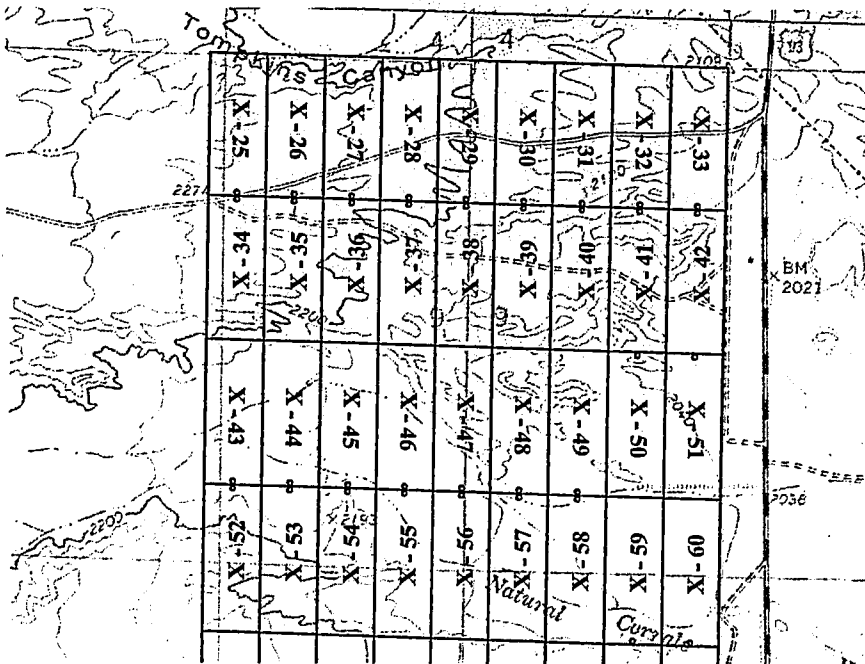 Tompkins Canyon
4
93
2108
X-25
X-26
X-27
X-28
X-29
X-30
X-31
X-32
X-33
2271
X-34
X-35
X-36
X-37
X-38
X-39
X-40
X-41
X-42
BM
2021
2200
X-43
X-44
X-45
X-46
X-47
X-48
X-49
X-50
X-51
2036
2200
X-52
X-53
X-54
X-55
X-56
X-57
X-58
X-59
X-60
Natural